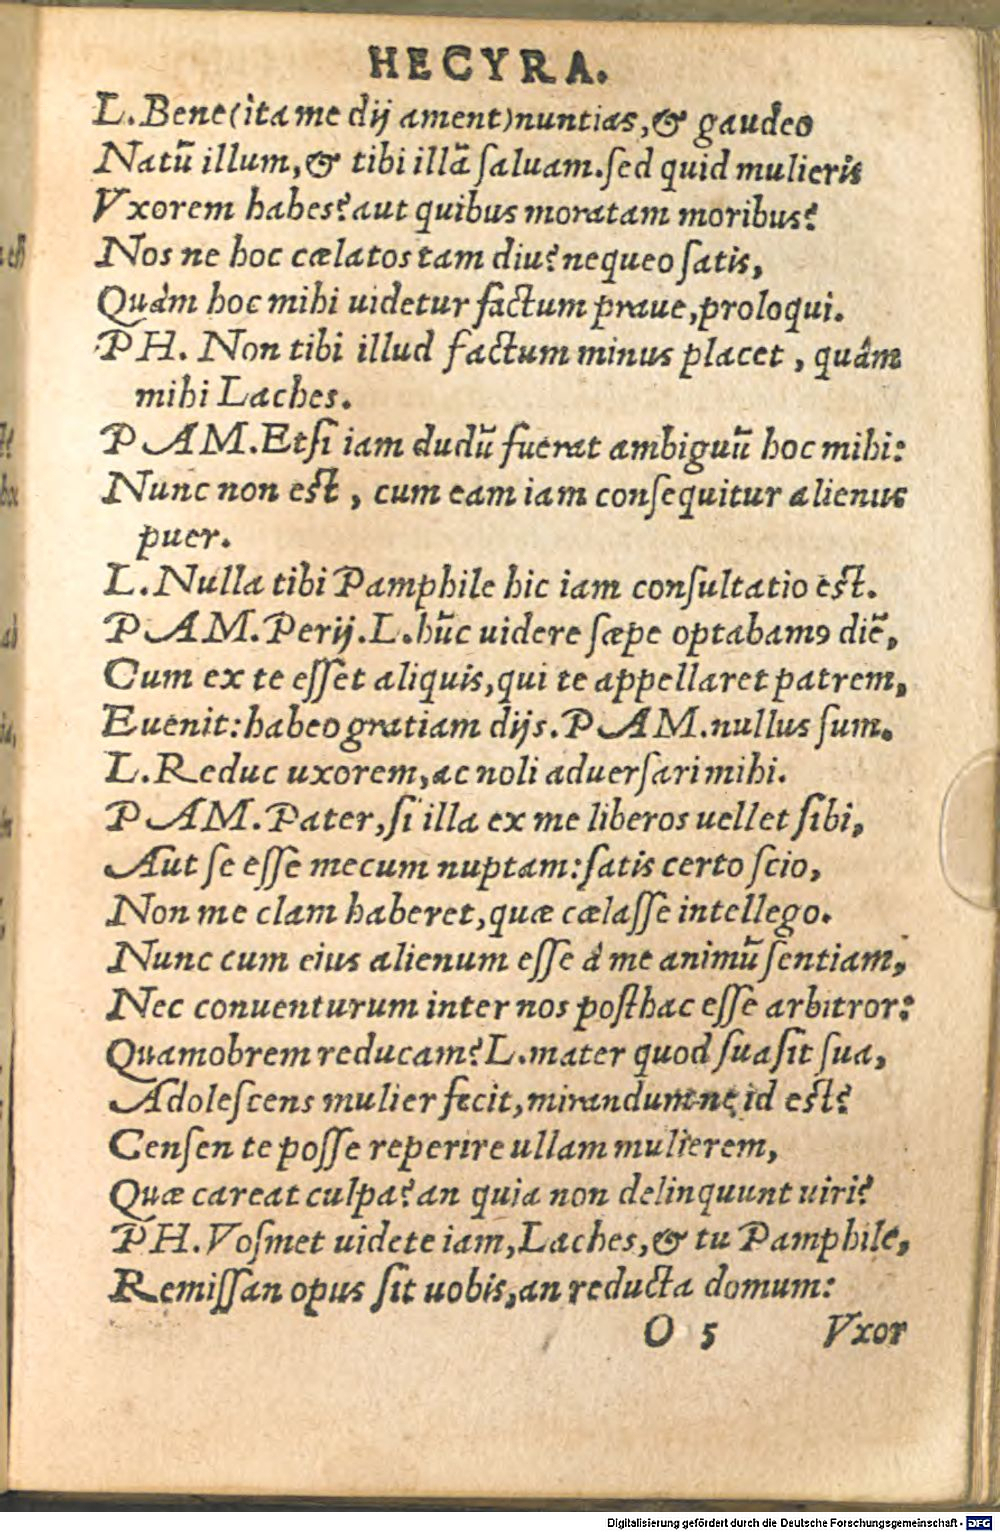 HECYRA.
L. Bene (ita me dij ament) nuntias, & gaudeo
Natũ illum, & tibi illã ſaluam. ſed quid mulieris
Vxorem habes? aut quibus moratam moribus?
Nos ne hoc cælatos tam diu? nequeo ſatis,
Quàm hoc mihi uidetur factum praue, proloqui.
PH. Non tibi illud factum minus placet, quâm
mihi Laches.
PAM. Etſi iam dudũ fuerat ambiguũ hoc mihi:
Nunc non est, cum eam iam conſequitur alienus
puer.
L. Nulla tibi Pamphile hic iam conſultatio est.
PAM. Perij. L. hũc uidere ſæpe optabamꝰ diẽ,
Cum ex te eſſet aliquis, qui te appellaret patrem,
Euenit: habeo gratiam dijs. PAM. nullus ſum.
L. Reduc uxorem, ac noli aduerſari mihi.
PAM. Pater, ſi illa ex me liberos uellet ſibi,
Aut ſe eſſe mecum nuptam: ſatis certo ſcio,
Non me clam haberet, quæ cælaſſe intellego.
Nunc cum eius alienum eſſe à me animũ ſentiam,
Nec conuenturum inter nos poſthac eſſe arbitror:
Quamobrem reducam? L. mater quod ſuaſit ſua,
Adoleſcens mulier fecit, mirandumne id est?
Cenſen te poſſe reperire ullam mulierem,
Quæ careat culpa? an quia non delinquunt uiri?
PH. Voſmet uidete iam, Laches, & tu Pamphile,
Remiſſan opus ſit uobis, an reducta domum:
O 5 Vxor
Digitalisierung gefördert durch die Deutsche Forschungsgemeinschaft - DFG